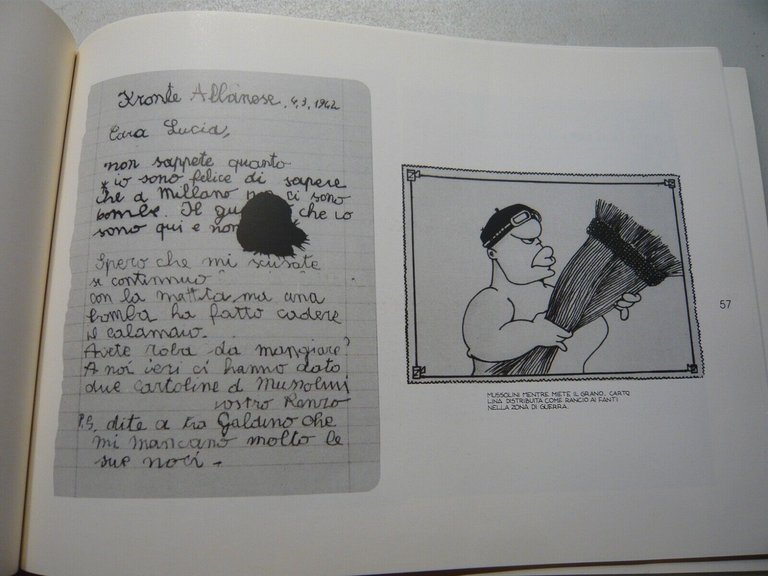 Fronte Albanese, 4, 3, 1942
Cara Lucia,
non sappete quanto
io sono felice di sapere
che a Millano non ci sono
bombe. Il che io
sono qui e non
Spero che mi scusate
se continuuo
con la mattita ma una
bomba ha fatto cadere
il calamaio.
Avete roba da mangiare?
A noi ieri ci hanno dato
due cartoline di Mussolini
vostro Renzo
P.S. dite a fra Galdino che
mi mancano molto le
sue noci.
57
MUSSOLINI MENTRE MIETE IL GRANO. CARTO
LINA DISTRIBUITA COME RANCIO AI FANTI
NELLA ZONA DI GUERRA.